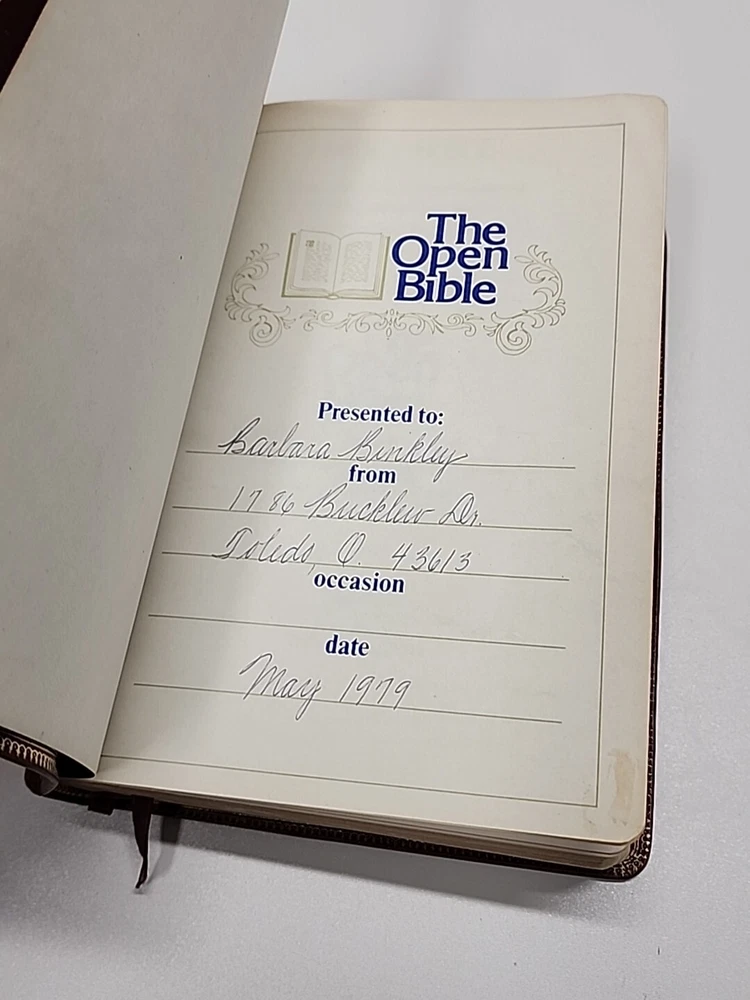 The
Open
Bible
Presented to:
Barbara Binkley
from
1786 Bucklew Dr.
Toledo, O. 43613
occasion
date
May 1979